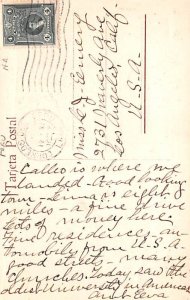 Tarjeta Postal
Miss E. J. Emery
2731 University Ave
Los Angeles, Calif
U.S.A.
Callao is where we
landed. Good looking
town - Lima is eight
miles - a fine drive
lots of money here
Fine residences, au-
tomobiles from U.S.A.
Good streets - many
churches. Today saw the
oldest University in America
Eva